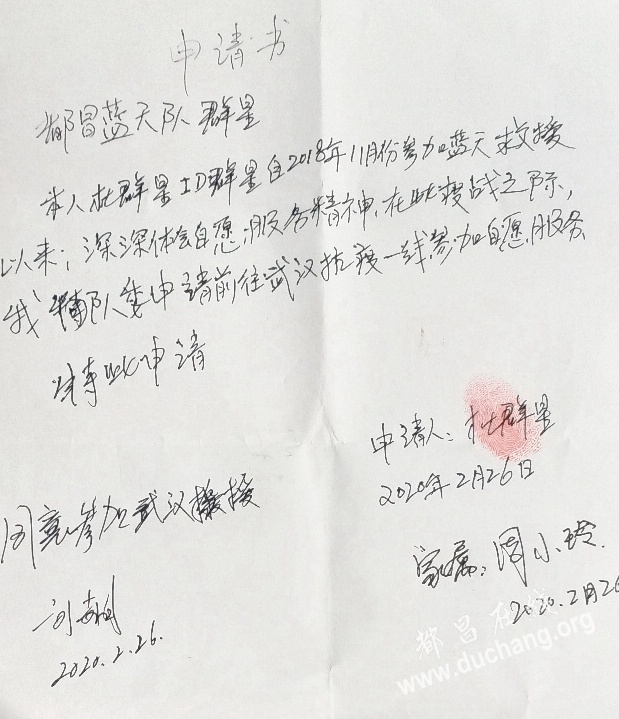 申请书
都昌蓝天队群星
本人杜群星ID群星自2018年11月份参加蓝天救援
以来,深深体会自愿服务精神,在此疫战之际,
我特队委申请前往武汉抗疫一线参加自愿服务
特此申请
申请人:杜群星
2020年2月26日
同意参加武汉救援
2020.2.26.
家属:周小玲.
2020.2月26
都昌在线
www.duchang.org